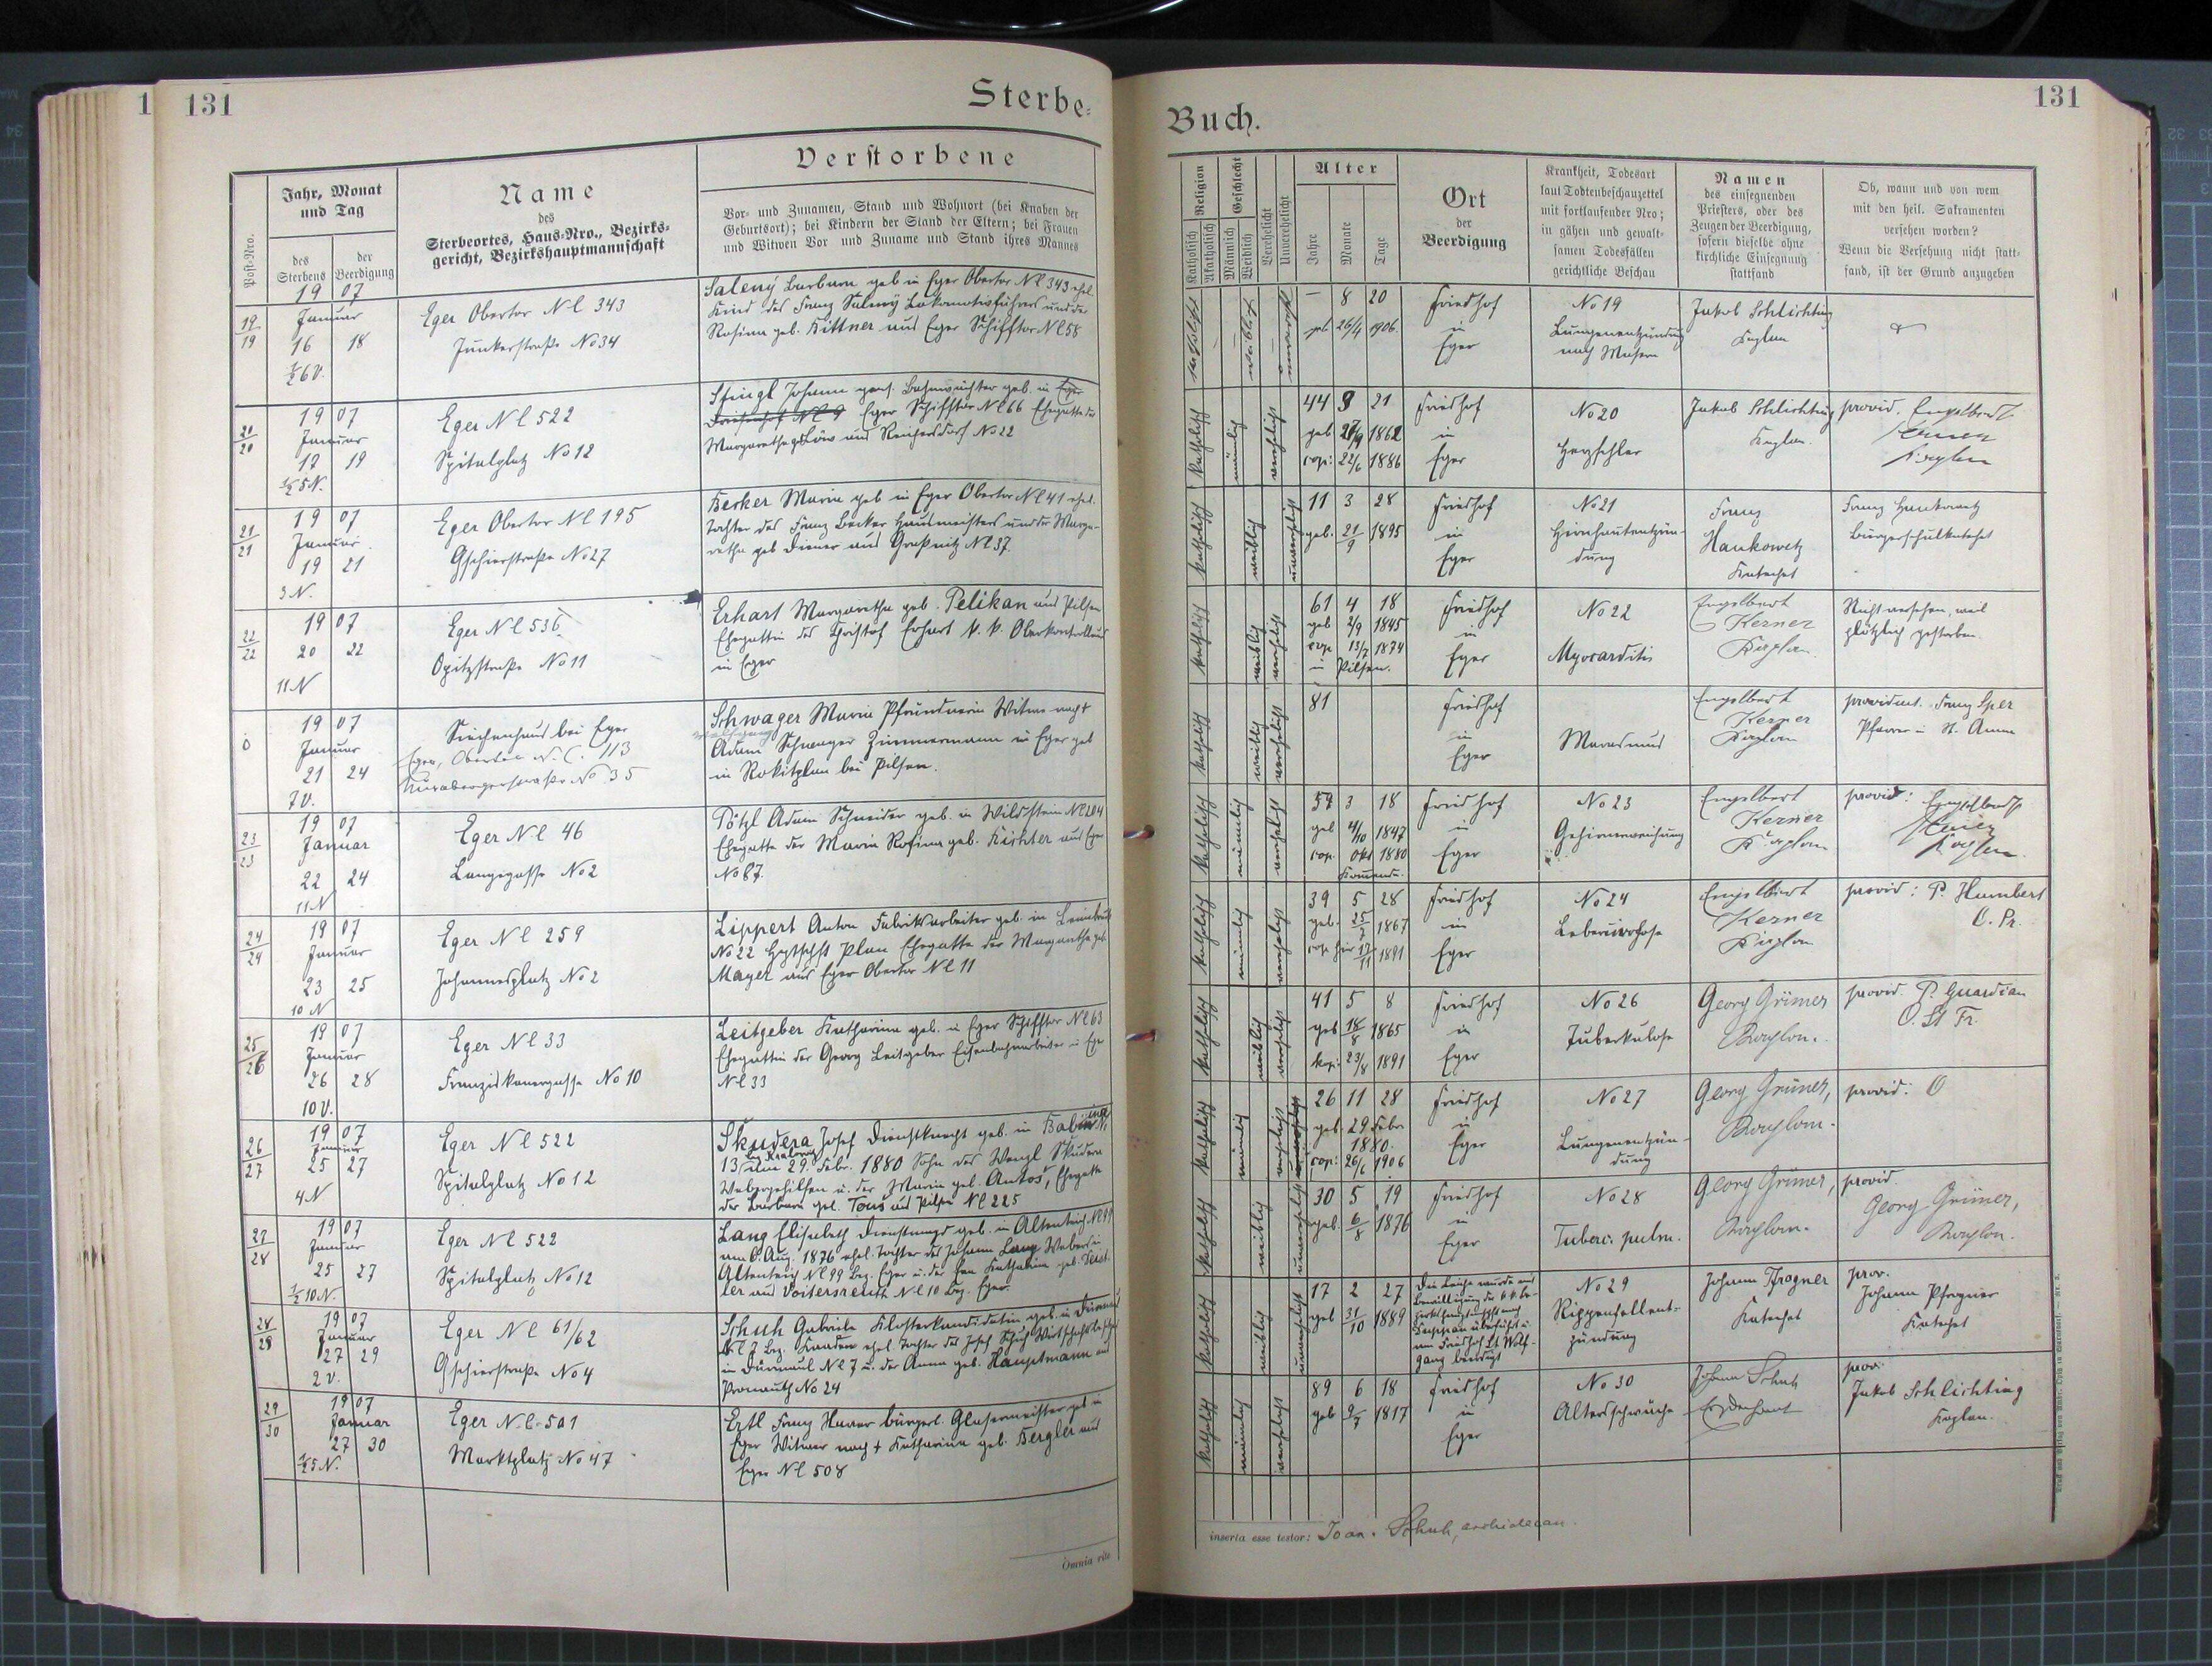 1 131
Sterbe=
Verstorbene
Jahr, Monat
und Tag
Name
des
Sterbeortes, Haus-Nro., Bezirks-
gericht, Bezirkshauptmannschaft
Vor- und Zunamen, Stand und Wohnort (bei Knaben der
Geburtsort); bei Kindern der Stand der Eltern; bei Frauen
und Witwen Vor und Zuname und Stand ihres Mannes
Post-Nro.
des
Sterbens
der
Beerdigung
19/19
1907
Januar
16 18
½6 V.
Eger Obertor N C 343
Junkerstraße No 34
Saleny Barbara geb in Eger Obertor N C 343 ehel.
Kind des Franz Saleny Lokomotivführers und der
Rosina geb. Kittner aus Eger Schifftor N C 58
20/20
1907
Januar
17 19
½5 N.
Eger N C 522
Spitalplatz No 12
Stingl Johann pens. Bahnwächter geb. in Eger
Eger Schifftor N C 66 Ehegatte der
Margaretha geb Löw aus Reichersdorf No 22
21/21
1907
Januar
19 21
3 N.
Eger Obertor N C 195
Gschierstraße No 27
Becker Maria geb in Eger Obertor N C 41 ehel.
Tochter des Franz Becker Hausmeisters und der Marga-
retha geb Diener aus Graßnitz N C 37.
22/22
1907
20 22
11 N
Eger N C 536
Opitzstraße No 11
Erhart Margaretha geb. Pelikan aus Pilsen
Ehegattin des Christof Erhart k. k. Oberkontrolleurs
in Eger
0
1907
Januar
21 24
7 V.
Siechenhaus bei Eger
Eger, Obertor N. C. 113
Nürnbergerstraße No 35
Schwager Maria Pfründnerin Witwe nach †
Wolfgang
Adam Schwager Zimmermann in Eger geb
in Rokitzlan bei Pilsen.
23/23
1907
Januar
22 24
11 N
Eger N C 46
Langegasse No 2
Pötzl Adam Schneider geb. in Wildstein N C 204
Ehegatte der Maria Rosina geb. Richter aus Eger
No 87.
24/24
1907
Januar
23 25
10 N
Eger N C 259
Johannesplatz No 2
Lippert Anton Fabriksarbeiter geb. in
No 22 Hptschft Plan Ehegatte der Margaretha geb.
Mayer aus Eger Obertor N C 11
25/26
1907
Januar
26 28
10 V.
Eger N C 33
Franziskanergasse No 10
Leitgeber Katharina geb. in Eger Schifftor N C 63
Ehegattin des Georg Leitgeber Eisenbahnarbeiter in Eger
N C 33
26/27
1907
Januar
25 27
4 N
Eger N C 522
Spitalplatz No 12
Škudera Josef Dienstknecht geb. in
13 am 29. Febr. 1880 Sohn des Wenzl Škudera
Webergehilfen u. der Maria geb. Antoš, Ehegatte
der Barbara geb. Touš aus Pilsen N C 225
27/28
1907
Januar
25 27
½10 N.
Eger N C 522
Spitalplatz No 12
Lang Elisabeth Dienstmagd geb. in Altenteich N C 99
am 6. Aug. 1876 ehel. Tochter des Johann Lang Webers in
Altenteich N C 99 Bez. Eger u. der Katharina geb.
ler aus Voitersreuth N C 10 Bez. Eger.
28/29
1907
Januar
27 29
2 V.
Eger N C 61/62
Gschierstraße No 4
Schuh Gabriele Klosterkandidatin geb. in Dürmaul
N C 7 Bez. Kaaden ehel. Tochter des Josef Schuh Wirtschaftsbesitzers
in Dürmaul N C 7 u. der Anna geb. Hauptmann aus
Promuth No 24
29/30
1907
Januar
27 30
½5 N.
Eger N. C. 501
Marktplatz No 47
Ertl Franz Xaver bürgerl. Glasermeister geb in
Eger Witwer nach † Katharina geb. Bergler aus
Eger N C 508
Omnia rite
131
Buch.
Religion
Katholisch
Akatholisch
Geschlecht
Männlich
Weiblich
Verehelicht
Unverehelicht
Alter
Jahre
Monate
Tage
Ort
der
Beerdigung
Krankheit, Todesart
laut Todtenbeschauzettel
mit fortlaufender Nro;
in gähen und gewalt-
samen Todesfällen
gerichtliche Beschau
Namen
des einsegnenden
Priesters, oder des
Zeugen der Beerdigung,
sofern dieselbe ohne
kirchliche Einsegnung
stattfand
Ob, wann und von wem
mit den heil. Sakramenten
versehen worden?
Wenn die Versehung nicht statt-
fand, ist der Grund anzugeben
katholisch weiblich
— 8 20
geb. 26/4 1906.
Friedhof
in
Eger
No 19
Lungenentzündung
nach Masern
Jakob Schlichting
Kaplan
katholisch männlich verehelicht
44 3 21
geb 27/9 1862
cop: 22/6 1886
Friedhof
in
Eger
No 20
Herzfehler
Jakob Schlichting
Kaplan.
provid. Engelbert
Kerner
Kaplan
katholisch weiblich unverehelicht
11 3 28
geb. 21/9 1895
Friedhof
in
Eger
No 21
Hirnhautentzün-
dung
Franz
Hankowetz
Katechet
Franz Hankowetz
Bürgerschulkatechet
katholisch weiblich verehelicht
61 4 18
geb 2/9 1845
cop 13/7 1874
in Pilsen.
Friedhof
in
Eger
No 22
Myocarditis
Engelbert
Kerner
Kaplan.
Nicht versehen, weil
plötzlich gestorben.
katholisch weiblich verehelicht
81
Friedhof
in
Eger
Marasmus
Engelbert
Kerner
Kaplan
providirt. Franz Sper
Pfarrer in St. Anna
katholisch männlich verehelicht
59 3 18
geb 4/10 1847
cop. Okt 1880
Friedhof
in
Eger
No 23
Gehirnerweichung
Engelbert
Kerner
Kaplan
provid: Engelbert
Kerner
Kaplan.
katholisch männlich verehelicht
39 5 28
geb. 25/7 1867
cop hier 17/11 1891
Friedhof
in
Eger
No 24
Lebercirrhose
Engelbert
Kerner
Kaplan
provid: P. Humbert
O. Pr.
katholisch weiblich verehelicht
41 5 8
geb 18/8 1865
kop: 23/8 1891
Friedhof
in
Eger
No 26
Tuberkulose
Georg Grüner
Kaplan.
provid. P. Guardian
O. St Fr.
katholisch männlich verehelicht
26 11 28
geb. 29 Febr
1880.
cop: 26/6 1906
Friedhof
in
Eger
No 27
Lungenentzün-
dung
Georg Grüner,
Kaplan.
provid: O
katholisch weiblich unverehelicht
30 5 19
geb. 6/8 1876
Friedhof
in
Eger
No 28
Tuberc. pulm.
Georg Grüner,
Kaplan.
provid.
Georg Grüner,
Kaplan.
katholisch weiblich unverehelicht
17 2 27
geb 31/10 1889
Die Leiche wurde mit
Bewilligung der k. k. Be-
zirkshauptmschft nach
überführt u.
am Friedhof St. Wolf-
gang beerdigt
No 29
Rippenfellent-
zündung
Johann Pfragner
Katechet
prov.
Johann Pfragner
Katechet
katholisch männlich verehelicht
89 6 18
geb 9/7 1817
Friedhof
in
Eger
No 30
Altersschwäche
Johann Schuh
Erzdechant
prov.
Jakob Schlichting
Kaplan.
inserta esse testor: Joan. Schuh, archidecan.